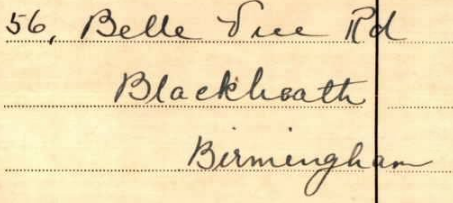 56, Belle Vue Rd
Blackheath
Birmingham